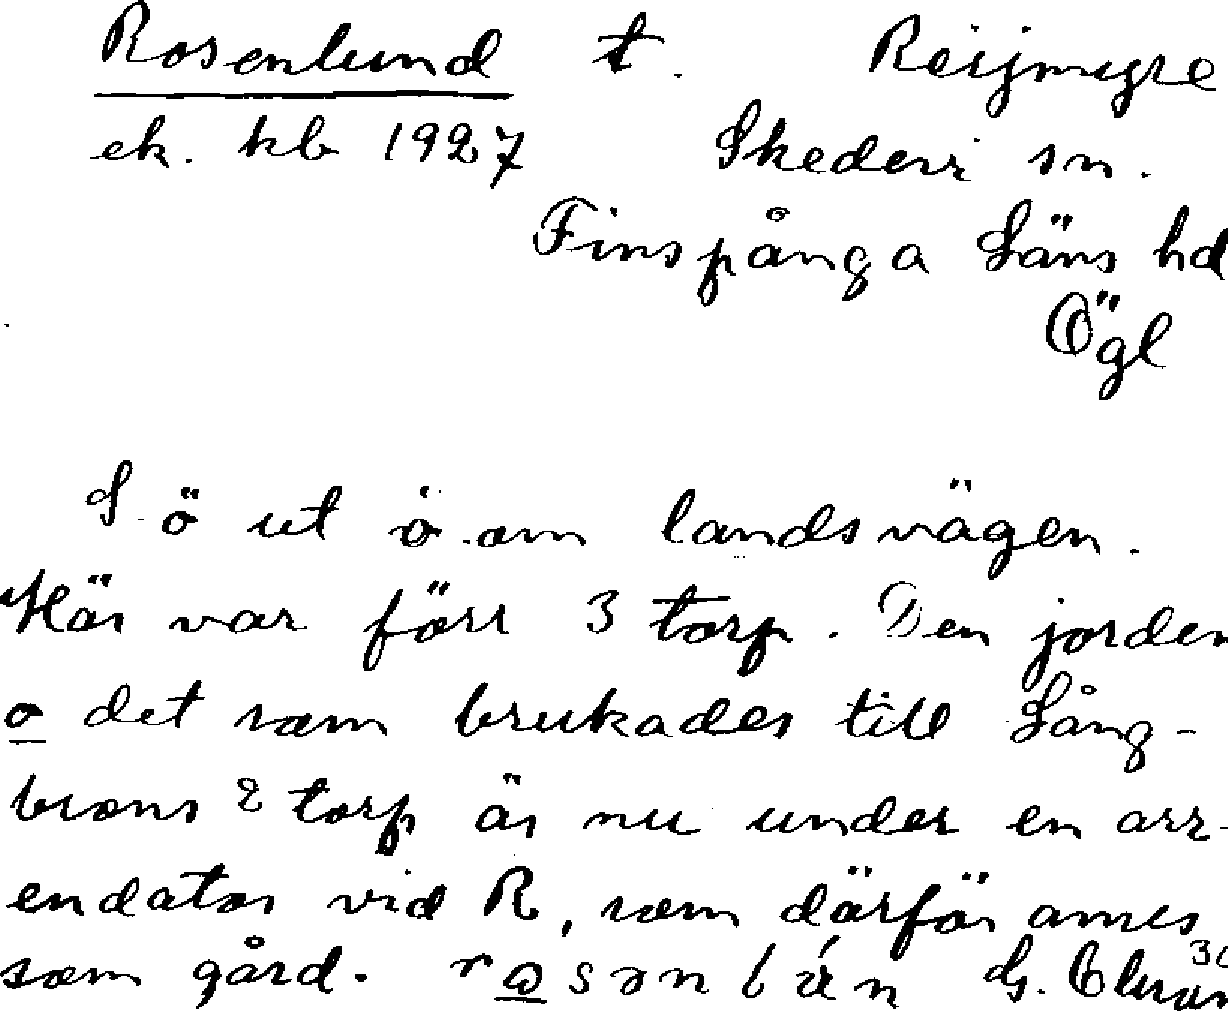 Rosenlund t. Reijmyre
ek. kb 1927 Skedevi sn.
Finspånga Läns hd
Ögl
S ö ut ö.om landsvägen.
Här var förr 3 torp. Den jorden
o det som brukades till Lång-
brons 2 torp är nu under en arr-
endator vid R, som därför anses
som gård. G.